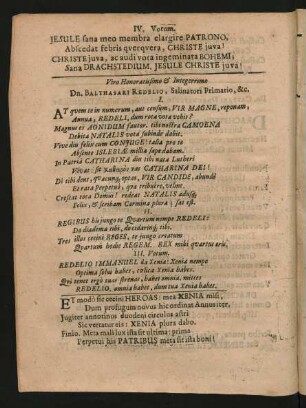 IV. Votum.
JESULE sana meo membra elargire PATRONO,
Abscedat febris querqvera, CHRISTE juva!
CHRISTE juva, ac audi vota ingeminata BOHEMI;
Sana DRACHSTEDIUM, JESULE CHRISTE juva!
Viro Honoratissimo & Integerrimo
Dn. BALTHASARI REDELIO, Salinatori Primario, &c.
I.
AT quem te in numerum, aut censum, VIR MAGNE, reponam,
Annua, REDELI, dum rota vota vobis?
Magnus es AONIDUM fautor, tibi nostra CAMOENA
Debita NATALIS vota subinde dabit.
Vive diu felix cum CONJUGE! talia pro te
Absente ISLEBIÆ millia
In Patria CATHARINA diu tibi nata Lutheri
Vivat: sit CATHARINA DEI!
Di tibi dent, optas, VIR CANDIDE, abunde
Et rata Perpetuo, qua tribuere, velint.
Crescat tota Domus! redeat NATALIS
Felix, & scribam Carmina plura; sat est.
II.
REGIBUS his jungo te Quartum nempe REDELI:
Da diadema tibi,
Tres illos cecini REGES, te jungo creatum
Quartum hodie REGEM. REX mihi quartus eris.
III. Votum.
REDELIO IMMANUEL da Xenia: Xenia nempe
Optima solus habes, cœlica Xenia habes.
Qui tenes ergo tuas strenas, habet omnia, mittes
REDELIO, omnia habet, dum tua Xenia habet.
ET modò sic cecini HEROAS: mea XENIA misi,
Dum prosfugum novus hic ordinat Annus iter,
Jugiter annorum duodeni circulus astri
Sic vertatur eis: XENIA plura dabo.
Finio. Meta mali lux ista sit ultima: prima
Perpetui his PATRIBUS meta sit ista boni!